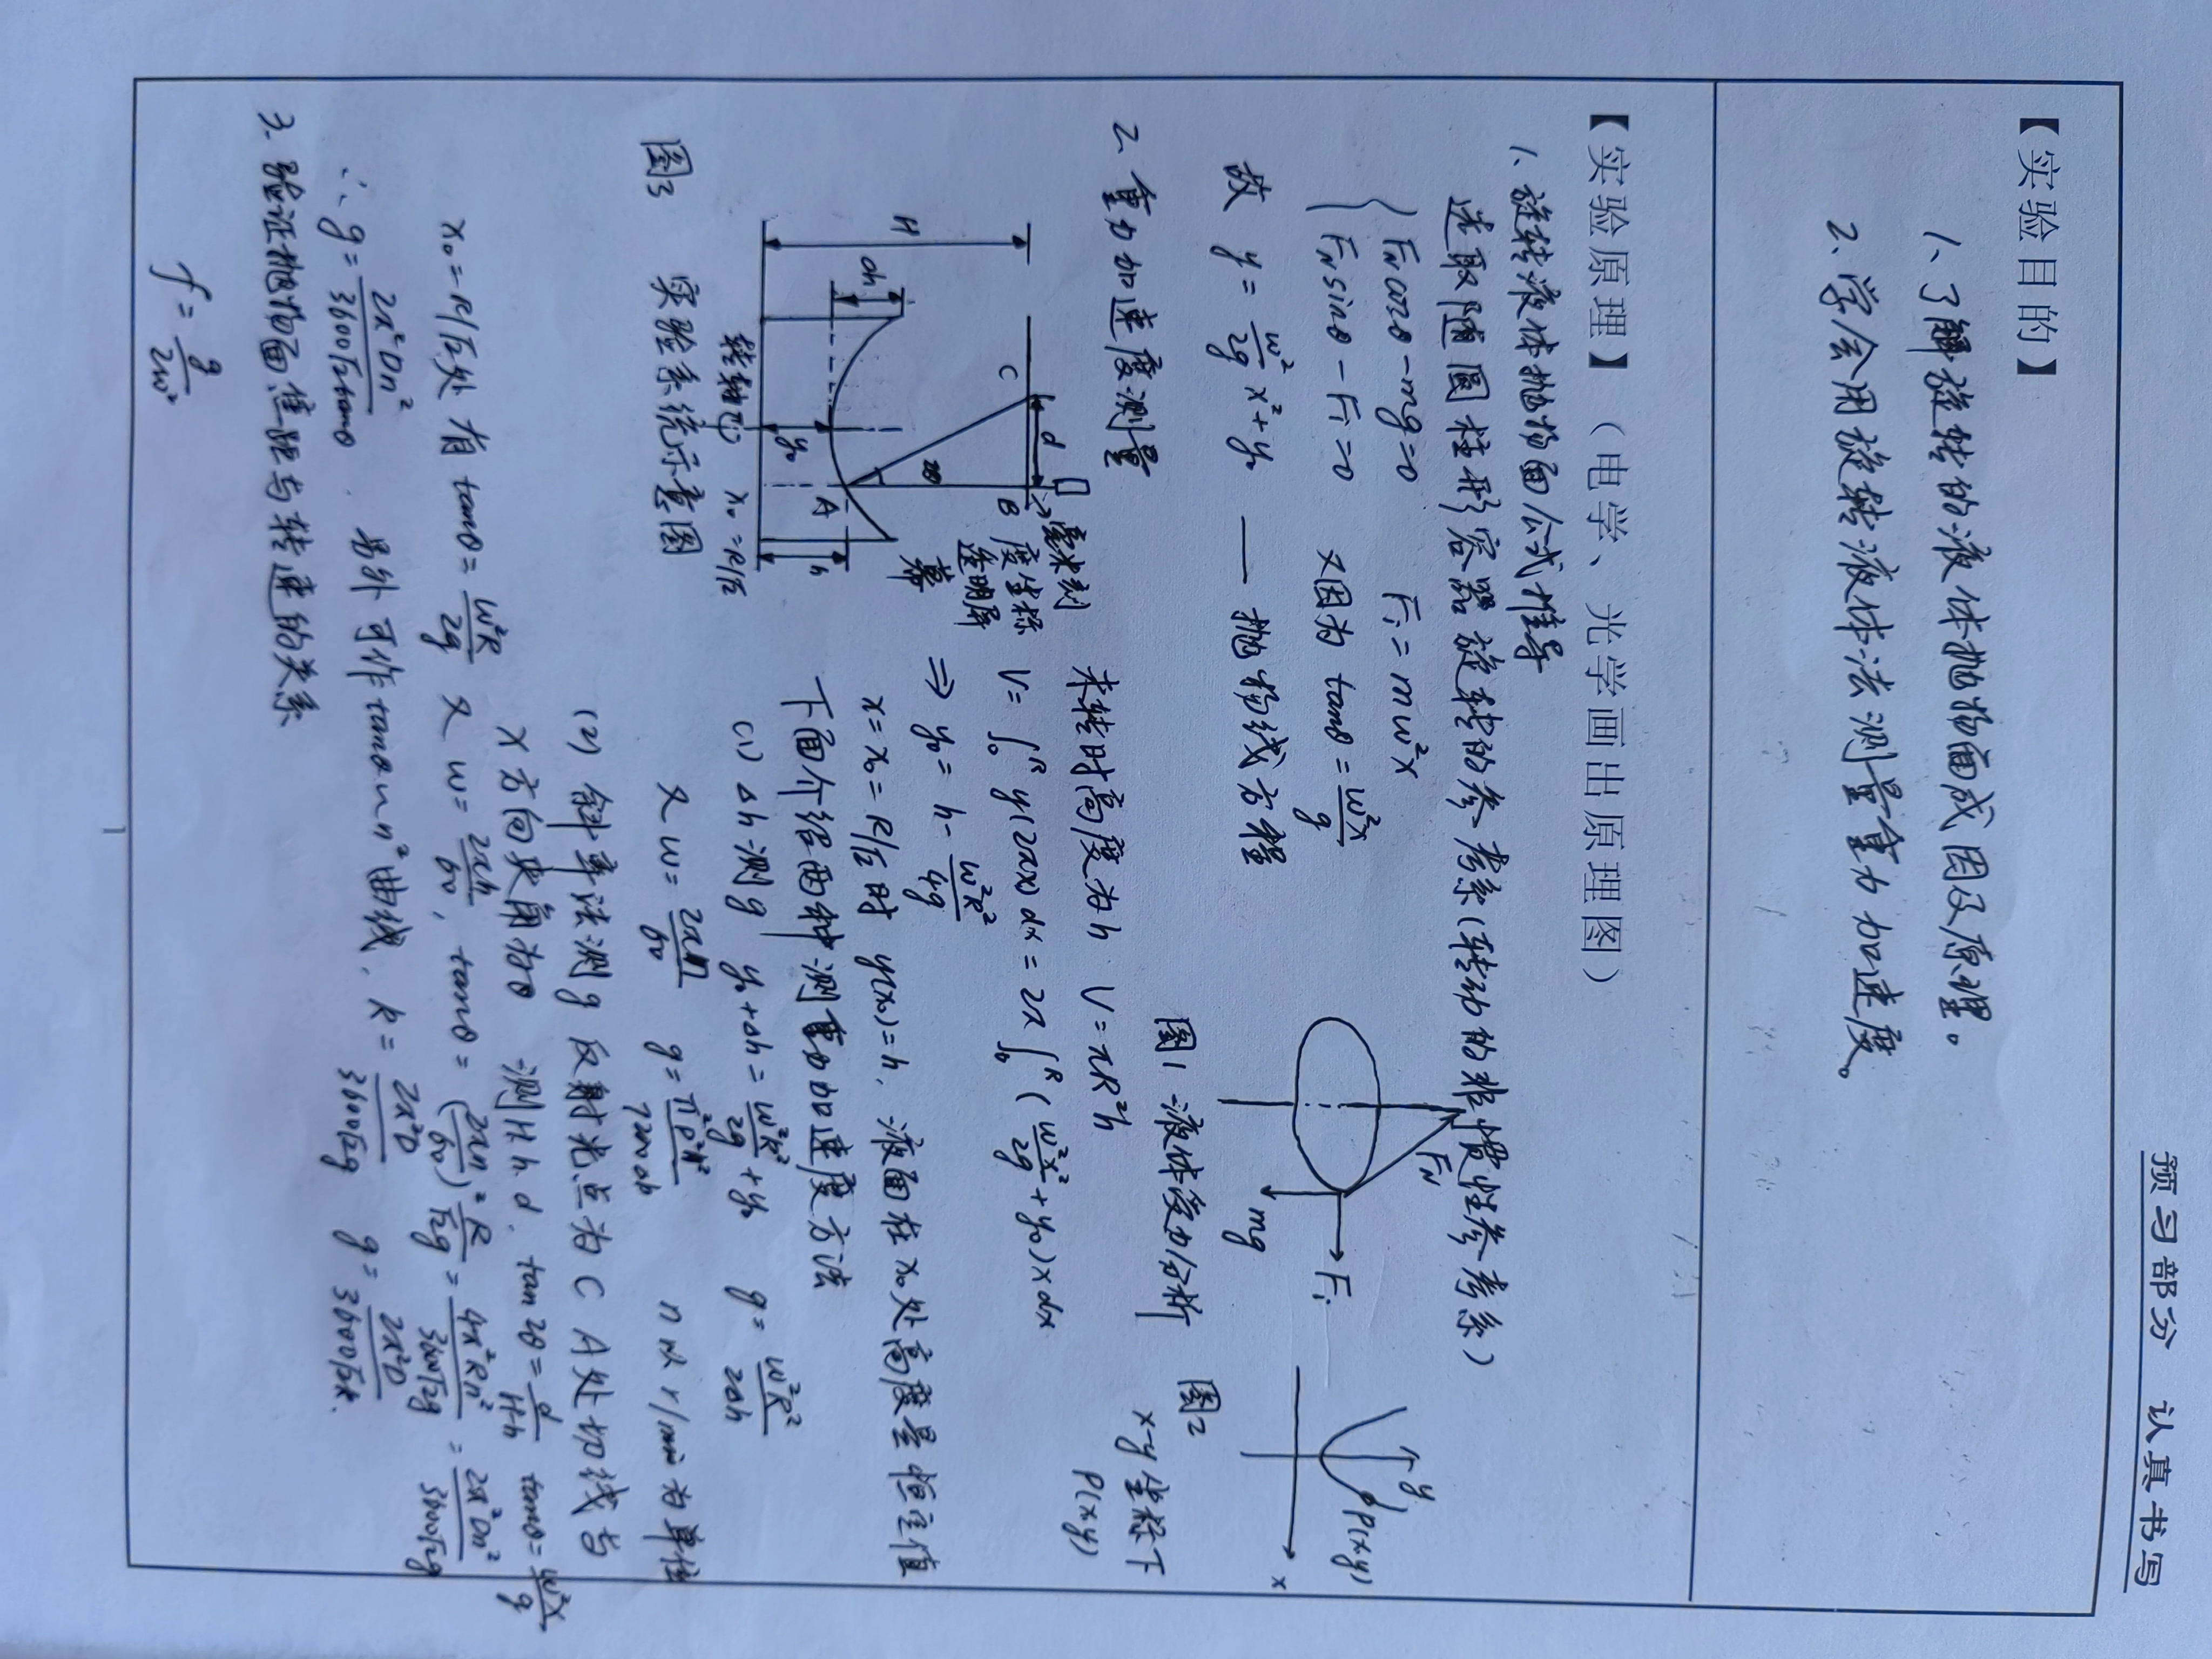 预习部分 认真书写
【实验目的】
1、了解旋转的液体抛物面成因及原理。
2、学会用旋转液体法测量重力加速度。
【实验原理】（电学、光学画出原理图）
1、旋转液体抛物面公式推导
选取随圆柱形容器旋转的参考系(转动的非惯性参考系)
{ F_N cosθ - mg = 0
F_N sinθ - F_i = 0
F_i = mω²x
又因为 tanθ = ω²x/g
故 y = ω²/2g x² + y₀ —— 抛物线方程
F_N
mg
F_i
图1 液体受力分析
y
P(x,y)
x
图2
x-y坐标下
P(x,y)
2、重力加速度测量
H
Δh
C
d
B
2θ
A
y₀
h
转轴
x₀=R/√2
毫米刻
度坐标
透明屏
幕
图3 实验系统示意图
未转时高度为h V=πR²h
V = ∫₀ᴿ y(2πx)dx = 2π∫₀ᴿ (ω²x²/2g + y₀)xdx
⇒ y₀ = h - ω²R²/4g
x = x₀ = R/√2时 y(x₀)=h, 液面在x₀处高度是恒定值
下面介绍两种测重力加速度方法
(1) Δh测g y₀+Δh = ω²R²/2g + y₀ g = ω²R²/2Δh
又 ω = 2πn/60 g = π²D²n²/7200Δh n以r/min为单位
(2) 斜率法测g 反射光点为C A处切线与
x方向夹角为θ 测H.h.d. tan2θ = d/H-h tanθ = ω²x/g
x₀=R/√2处 有 tanθ = ω²R/√2g 又 ω = 2πn/60, tanθ = (2πn/60)² R/√2g = 4π²Rn²/3600√2g = 2π²Dn²/3600√2g
∴ g = 2π²Dn²/3600√2tanθ. 另外可作tanθ~n²曲线, k = 2π²D/3600√2g g = 2π²D/3600√2k.
3. 验证抛物面焦距与转速的关系
f = g/2ω²
1